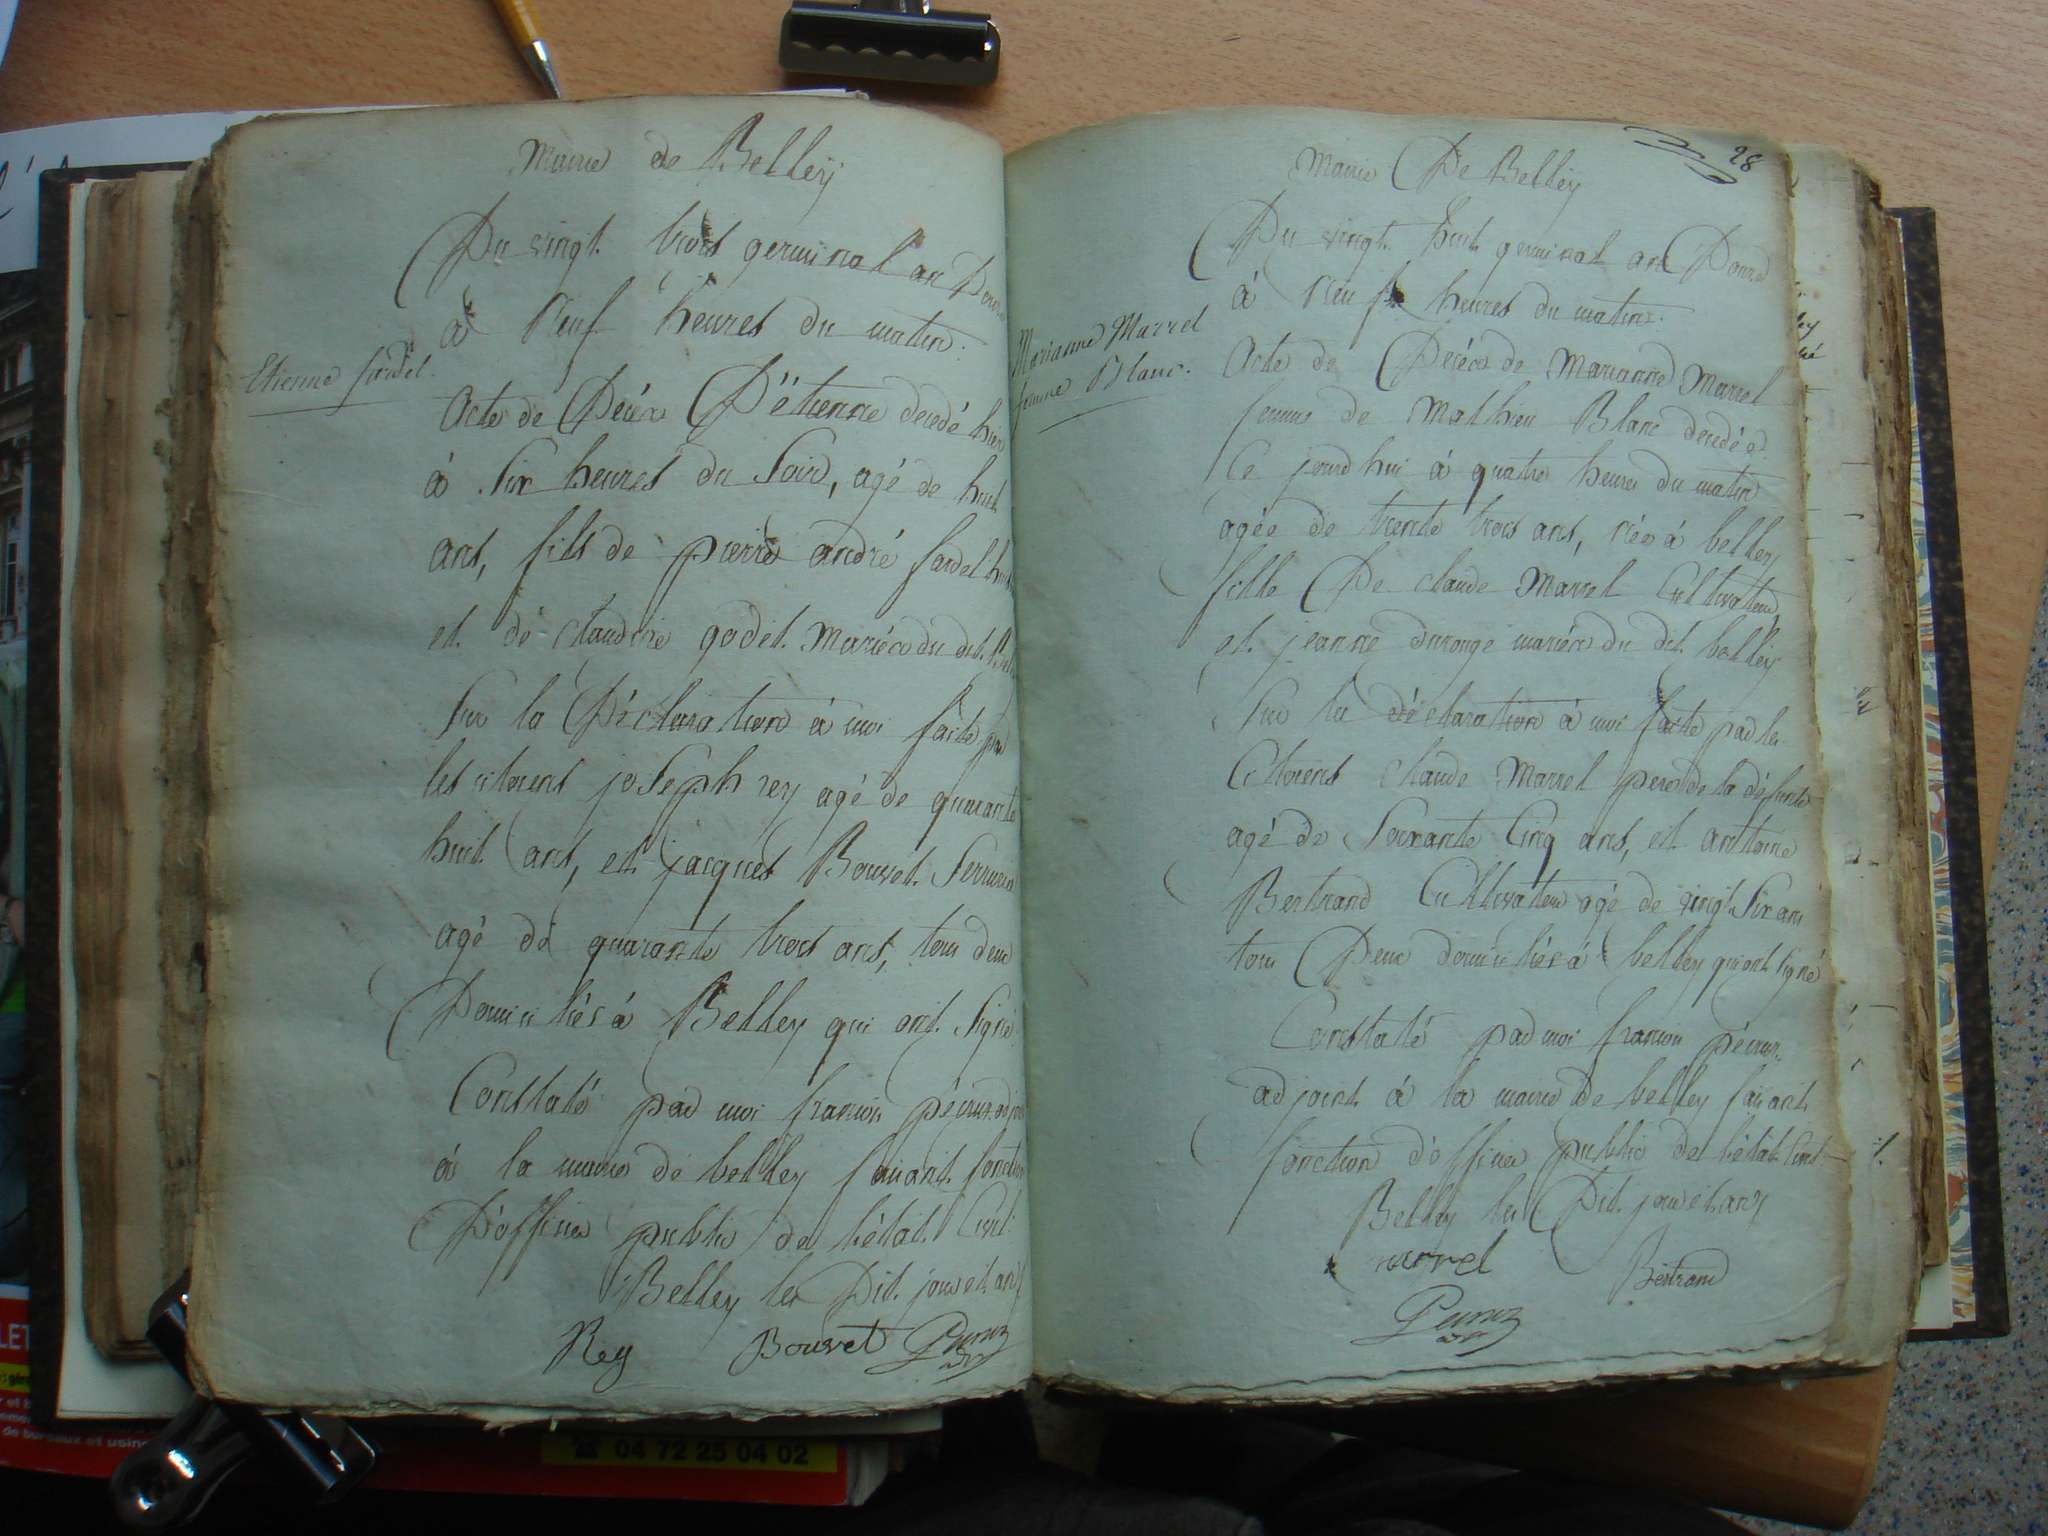 Mairie de Belley
Du vingt trois germinal an Douze
à Neuf heures du matin.
Etienne fardel.
Acte de Décès D'étienne decedé hier
à Six heures du Soir, agé de huit
ans, fils de pierre andré fardel
et de claudine godet mariés du dit
Sur la Déclaration à moi faite par
les citoiens joseph rey agé de quarante
huit ans, et jacques Bouvet Serrurier
agé de quarante trois ans, tous deux
Domiciliés à Belley qui ont Signé
Constaté par moi françois pécruz adjoint
à la mairie de belley faisant fonction
D'officier public de l'état Civil
Belley les Dit jour et an
Rey Bouvet
28
Mairie De Belley
Du vingt huit germinal an Douze
à Neuf heures du matin.
Marianne Marrel
femme Blanc.
Acte de Décès de Marianne Marrel
femme de Mathieu Blanc decédée
Ce jourd'hui à quatre heures du matin
agée de trente trois ans, née à belley
fille De claude Marrel Cultivateur
et jeanne durouge mariés du dit belley
Sur la déclaration à moi faite par les
Citoiens claude Marrel pere de la défunte
agé de Soixante Cinq ans, et antoine
Bertrand Cultivateur agé de vingt Six ans
tous Deux domiciliés à belley qui ont signé
Constaté par moi françois pécruz
adjoint à la mairie de belley faisant
fonction d'officier public de l'état Civil
Belley les Dit jour et an
marrel Bertrand
04 72 25 04 02